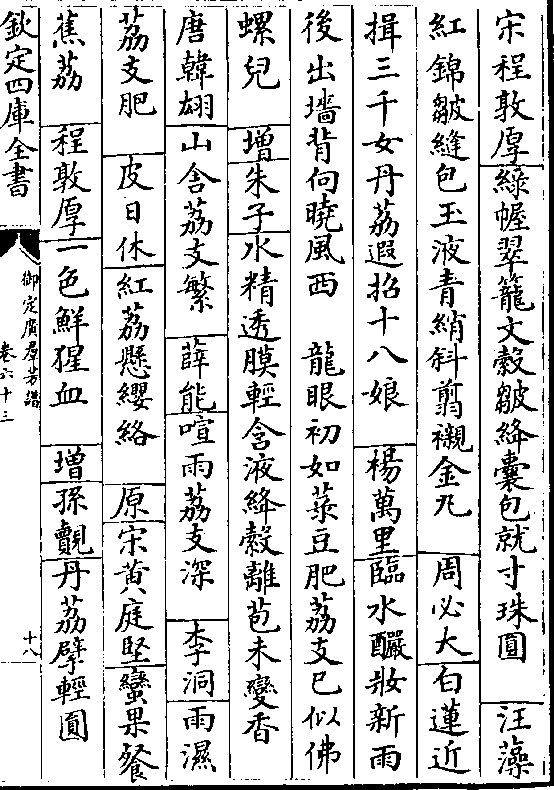 宋程敦厚綠幄翠籠文縠皺絳囊包就寸珠圓 汪藻
紅錦皺縫包玉液青綃斜翦襯金丸 周必大白蓮近
揖三千女丹荔遐招十八娘 楊萬里臨水釅妝新雨
後出墻背向曉風西 龍眼初如菉豆肥荔支已似佛
螺兒 增朱子水精透膜輕含液絳縠離苞未變香
唐韓翃山含荔支繁 薛能喧雨荔支深 李洞雨濕
荔支肥 皮日休紅荔懸纓絡 原宋黃庭堅蠻果餐
蕉荔 程敦厚一色鮮猩血 增孫覿丹荔擘輕圓
欽定四庫全書
御定廣羣芳譜
卷六十三
十八